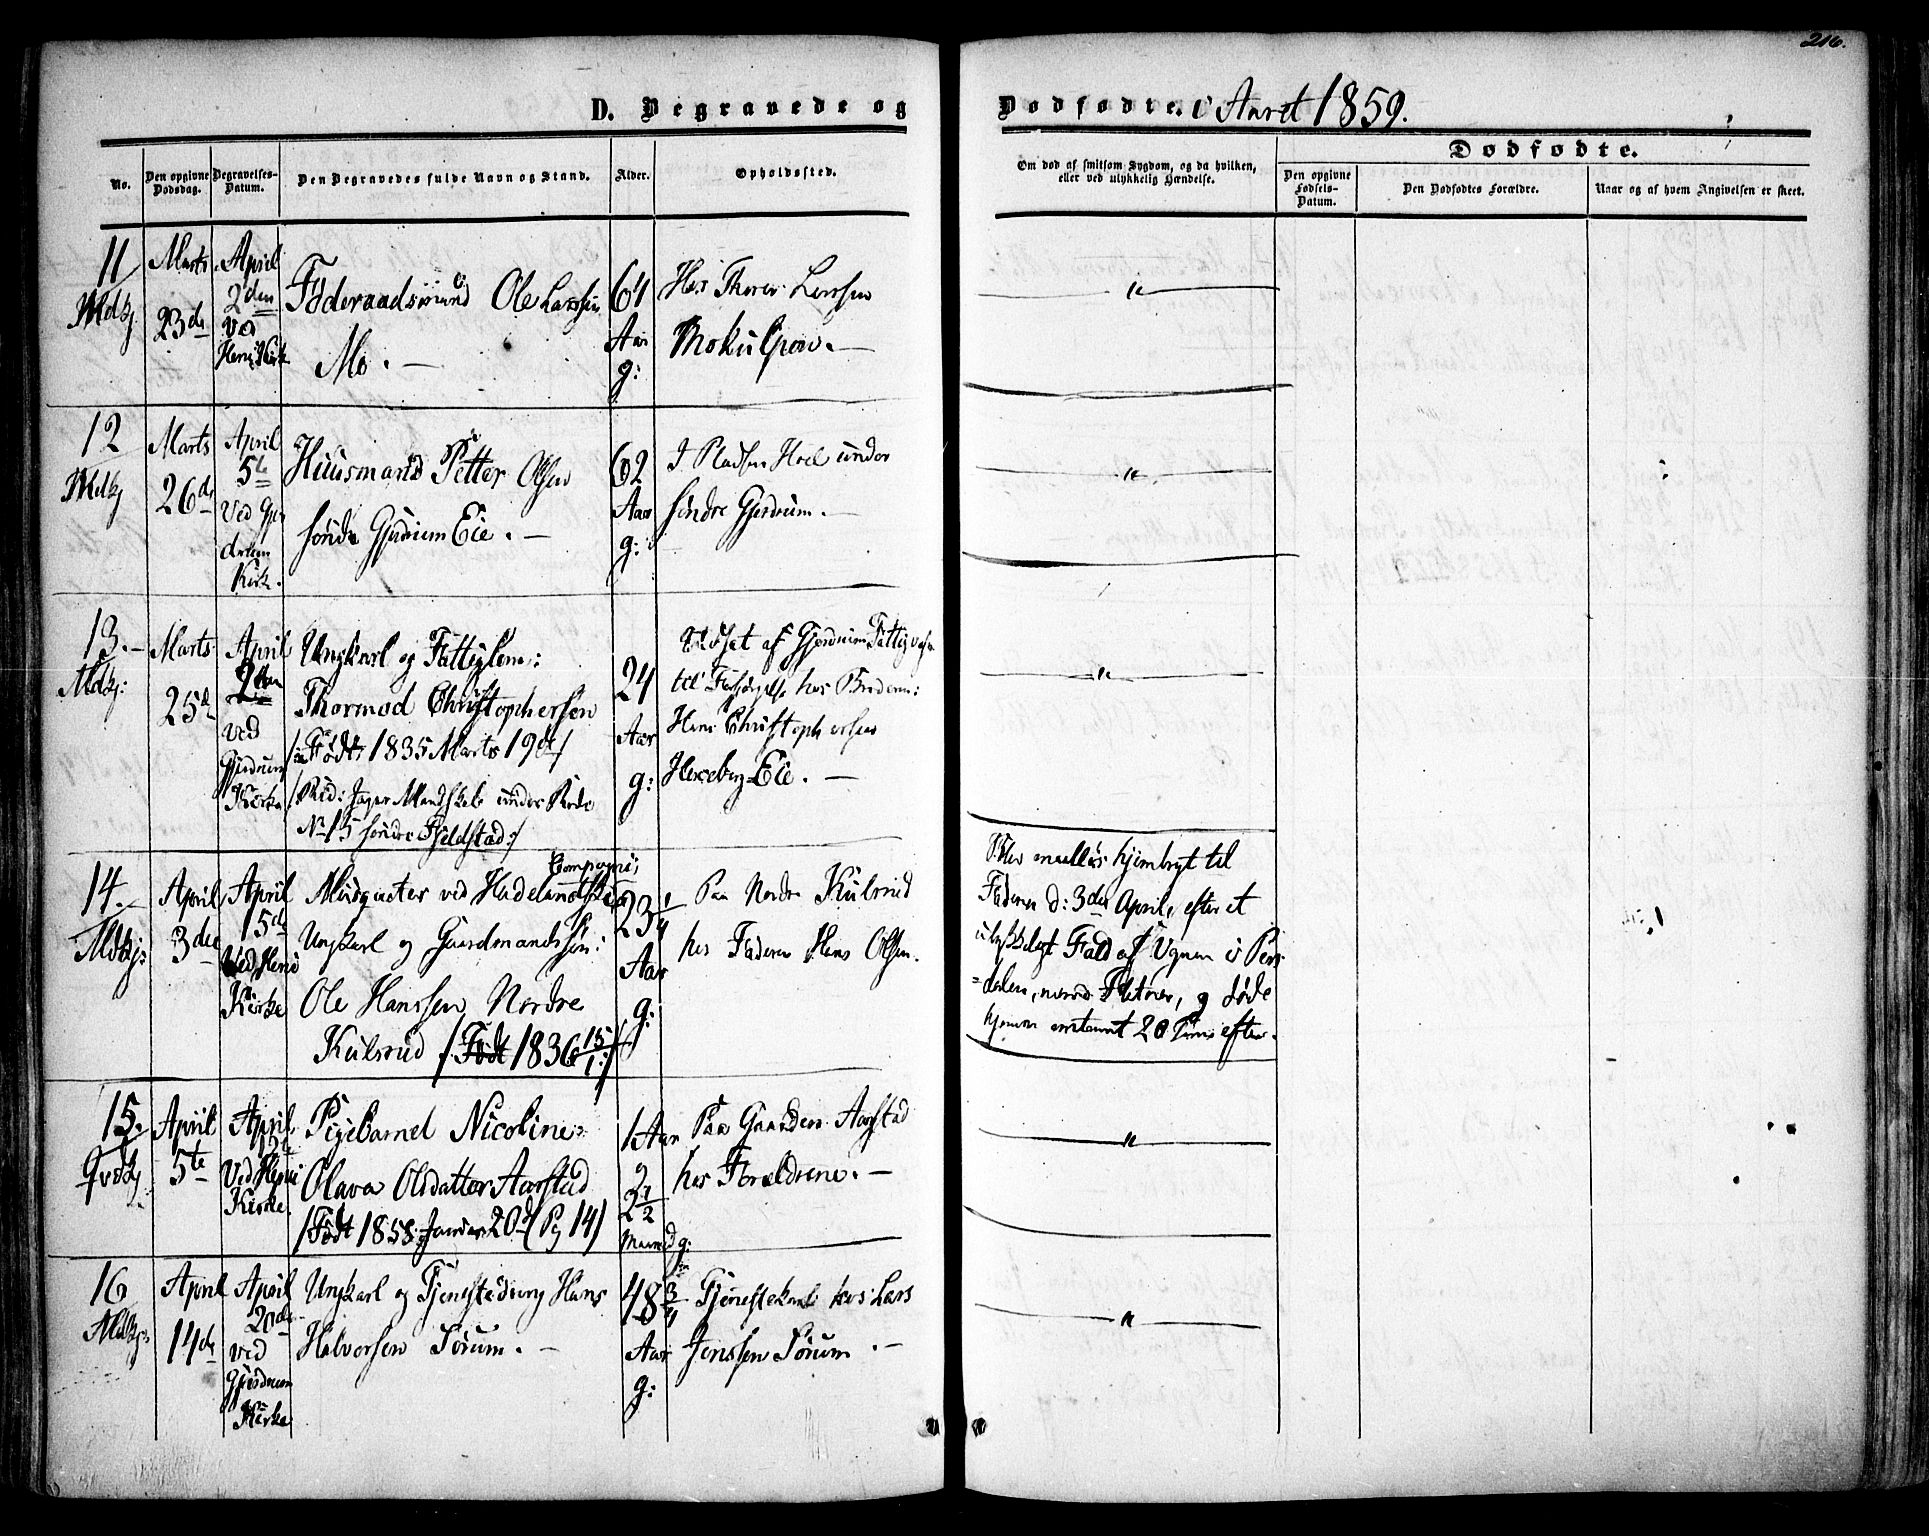 216.
D. Begravede og Dødfødte. i Aaret 1859.
No.
Den opgivne Dødsdag.
Begravelses-Datum.
Den Begravedes fulde Navn og Stand.
Alder.
Opholdssted.
Om død af smitsom Sygdom, og da hvilken,
eller ved ulykkelig Hændelse.
Dødfødte.
Den opgivne Fødsels-Datum.
Den Dødfødtes Forældre.
Naar og af hvem Angivelsen er skeet.
11
Mdkj
Marts
23de
April
2den
ved
Kirk
Föderaadsmand Ole Larssen
Mo. —
64
Aar
g:
Hos Larssen
— " —
12
Mdkj
Marts
26de
April
5te
ved Gjer
drum
Kirke.
Huusmand Petter Olsen
søndre Gjerdrum Eie. —
62
Aar
g:
I Pladsen under
søndre Gjerdrum. —
— " —
13. —
Mdkj:
Marts
25de
April
2den
ved
Gjerdrum
Kirke
Ungkarl og Fattiglem:
Thormod Christophersen
/: Født 1835 Marts 19de /
/: Jæger Mandskab under Rode
No 15 søndre Fjeldstad :/
24
Aar
g:
af Gjerdrum Fattigv
til Forsørgelse hos Broderen:
Hans Christophersen
Eie. —
— " —
14. —
Mdkj:
April
3die
April
15de
Ved
Kirke
ved Hadelandske Compagnie;
Ungkarl og Gaardmandssøn:
Ole Hanssen Nordre
Kulsrud /: Født 1836 15/1 :/
23 1/4
Aar
g:
Paa Nordre Kulsrud
hos Faderen Hans Olsen.
Blev hjembragt til
Faderen d: 3de April, efter et
ulykkeligt Fald af Vognen i
dalen, og døde
hjemme omtrent 20 Timer efter.
15.
Qvdkj
April
5te
April
15de
Ved
Kirke.
Pigebarnet Nicoline
Olava Olsdatter Aarstad
/: Født 1858 Januar 20de (Pg 14)
1 Aar
2 1/2
Maaned g:
Paa Gaarden Aarstad
hos Forældrene. —
— " —
16
Mdkj:
April
14de
April
20de
ved
Gjerdrum
Kirke
Ungkarl og Tjenestedreng Hans
Halvorsen Sörum. —
48 3/4
Aar
g:
Tjenestekarl hos Lars
Jenssen Sörum. —
— " —